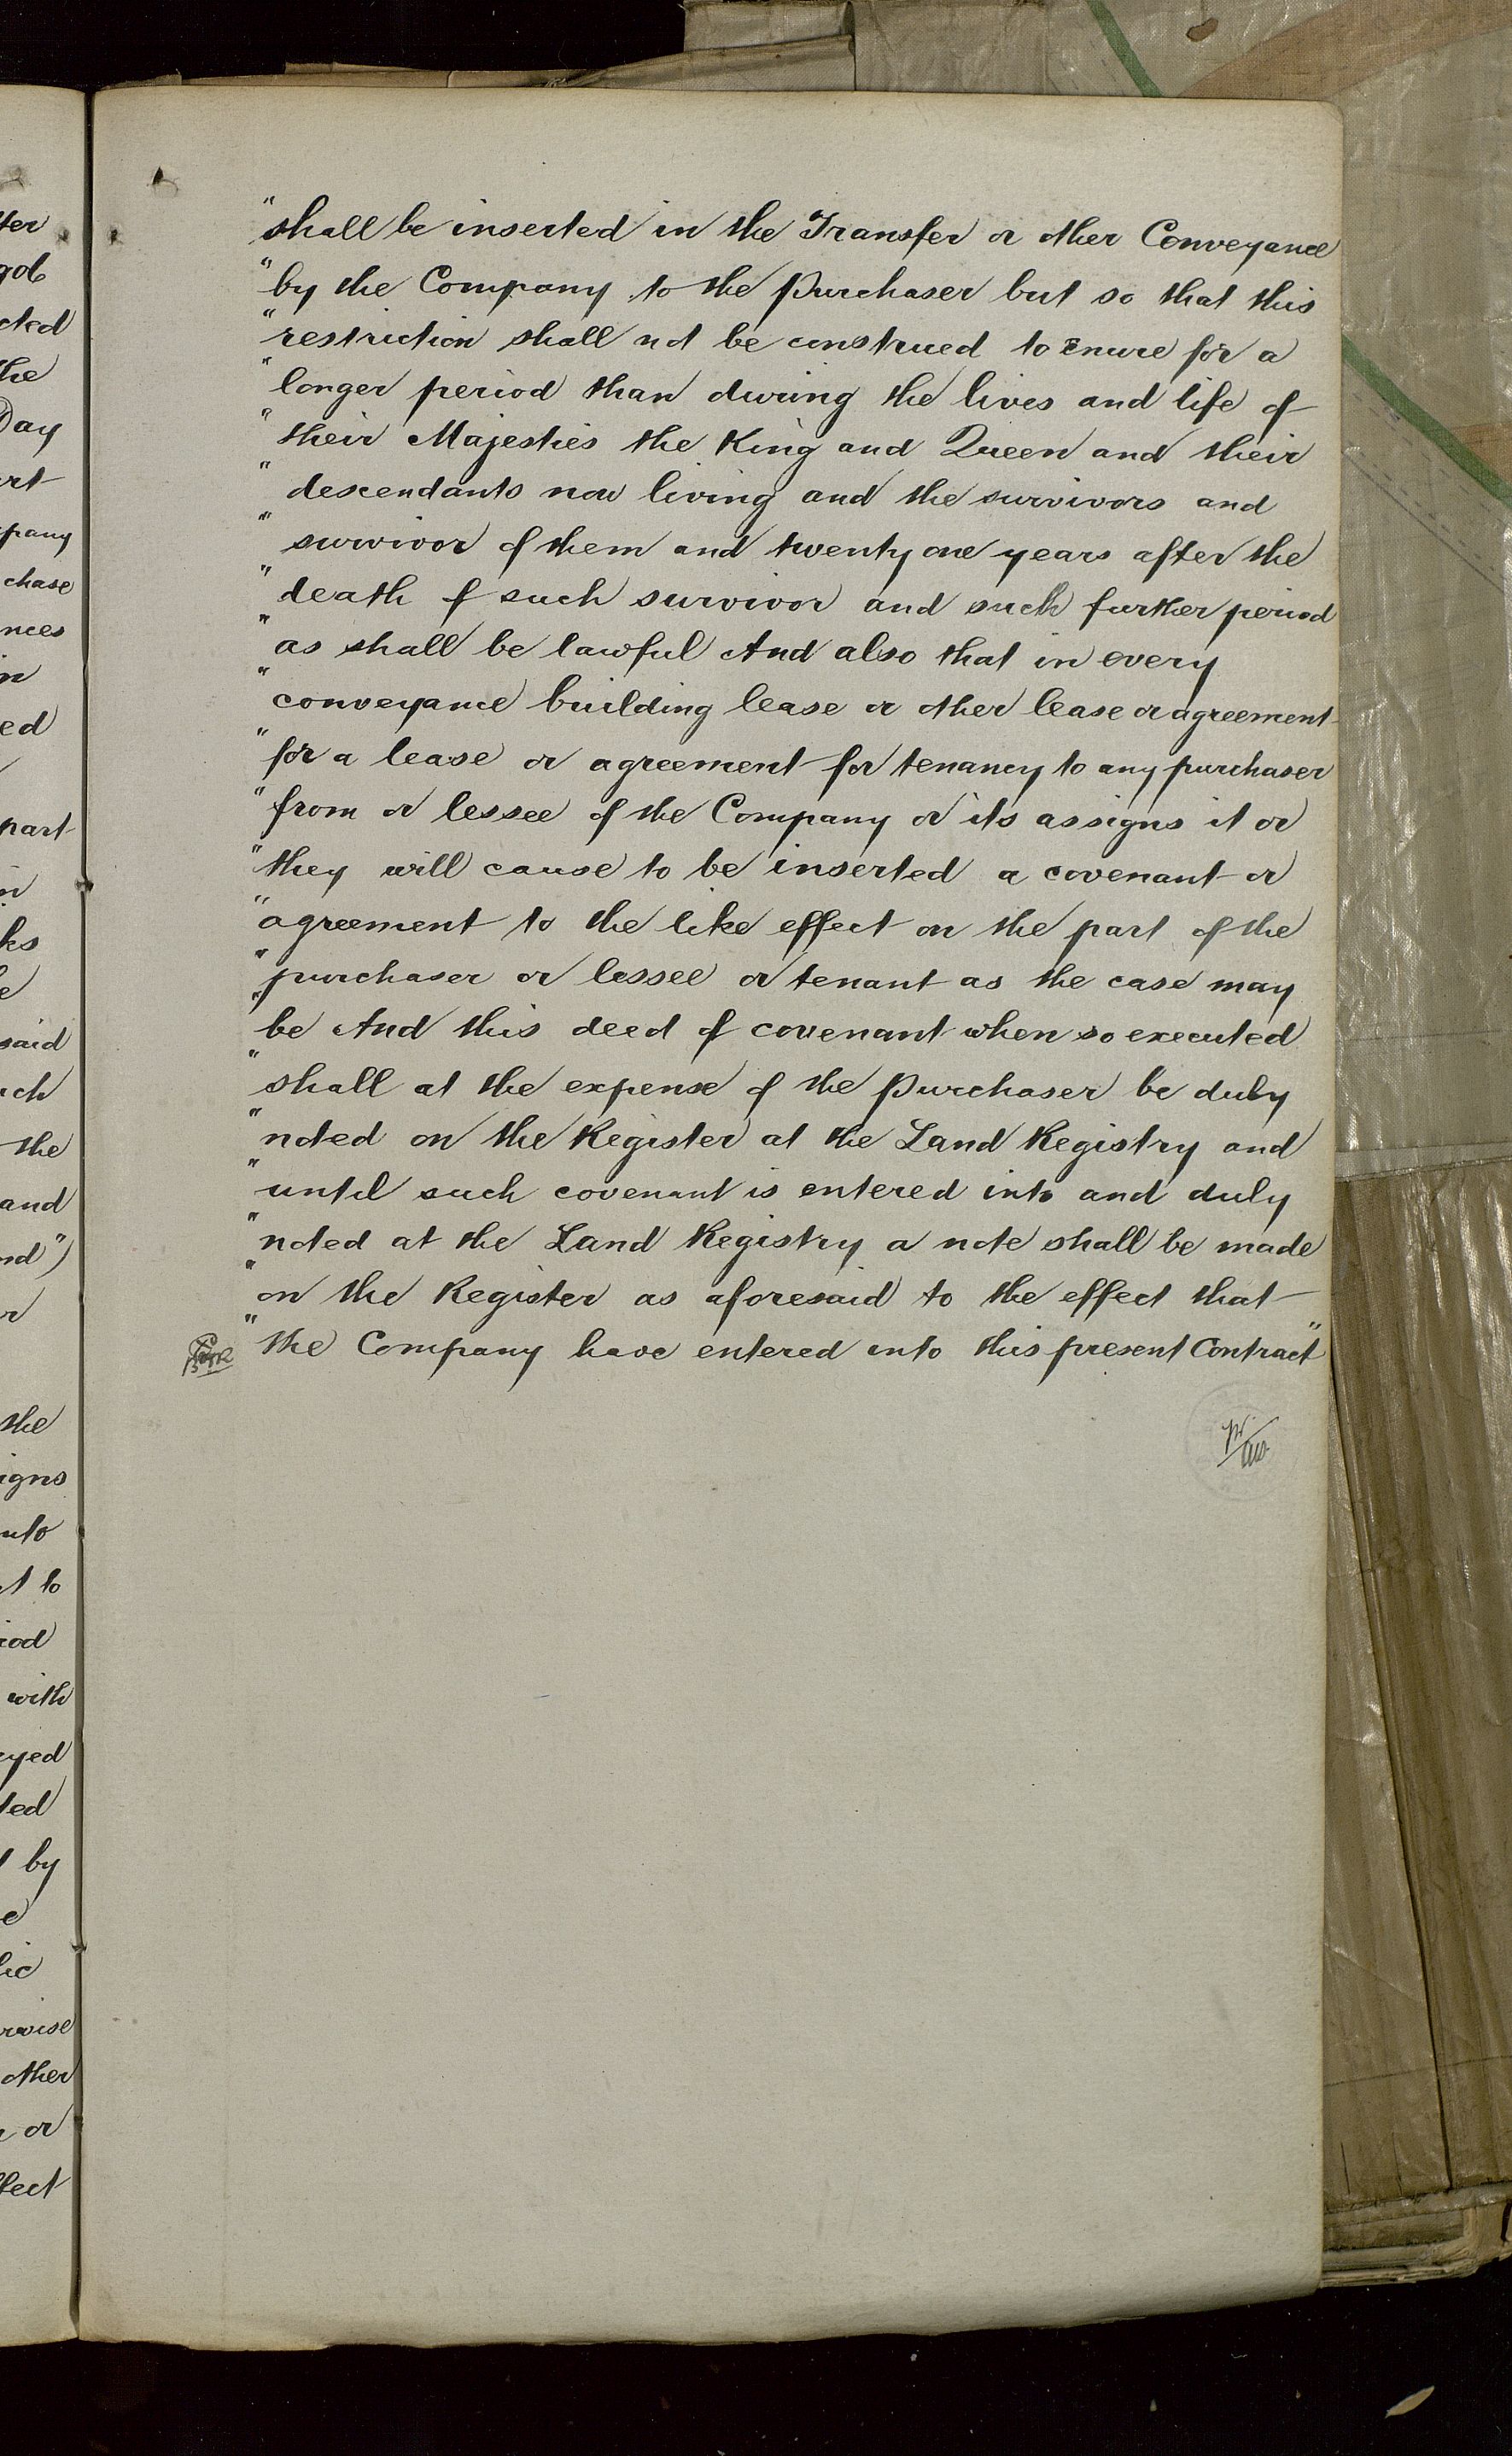 "shall be inserted in the Transfer or other Conveyance
"by the Company to the Purchaser but so that this
"restriction shall not be construed to enure for a
"longer period than during the lives and life of
"their Majesties the King and Queen and their
"descendants now living and the survivors and
"survivor of them and twenty one years after the
"death of such survivor and such further period
"as shall be lawful And also that in every
"conveyance building lease or other lease or agreement
"for a lease or agreement for tenancy to any purchaser
"from or lessee of the Company or its assigns it or
"they will cause to be inserted a covenant or
"agreement to the like effect on the part of the
"purchaser or lessee or tenant as the case may
"be And this deed of covenant when so executed
"shall at the expense of the Purchaser be duly
"noted on the Register at the Land Registry and
"until such covenant is entered into and duly
"noted at the Land Registry a note shall be made
"on the Register as aforesaid to the effect that
"the Company have entered into this present Contract"
cted
the
Day
pany
chase
ed
part
said
the
and
the
into
with
ted
by
other
or